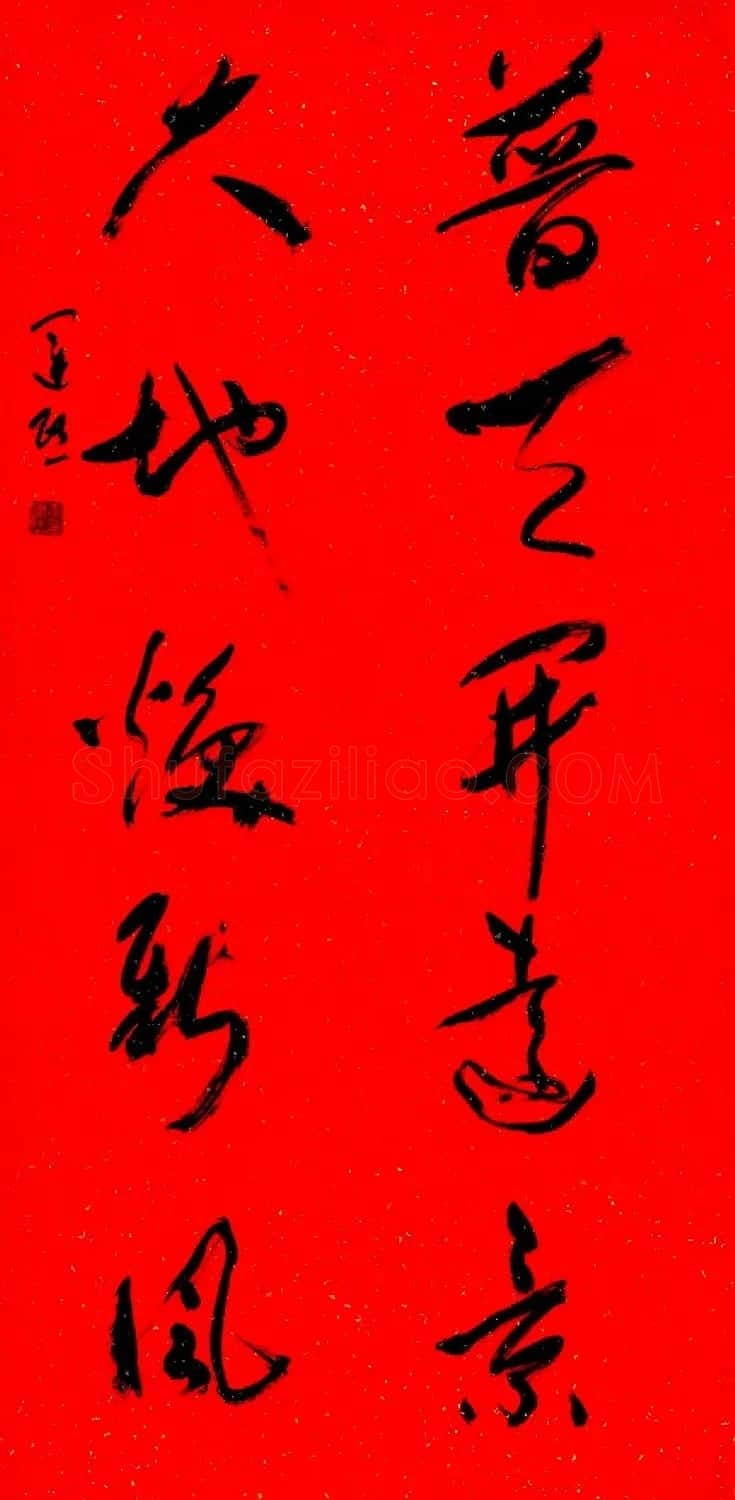 普天开远景
大地焕新风
Shufaziliao.COM